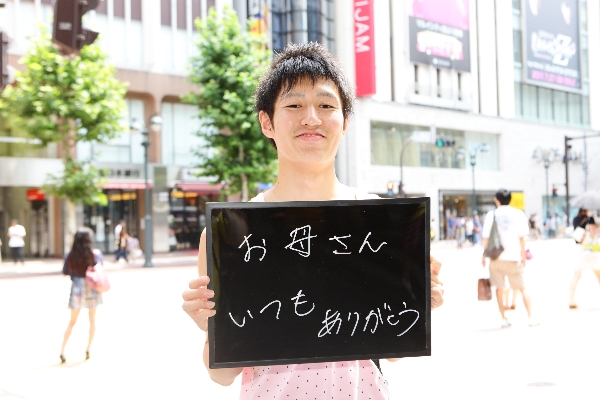 IJAM
お母さん
いつもありがとう